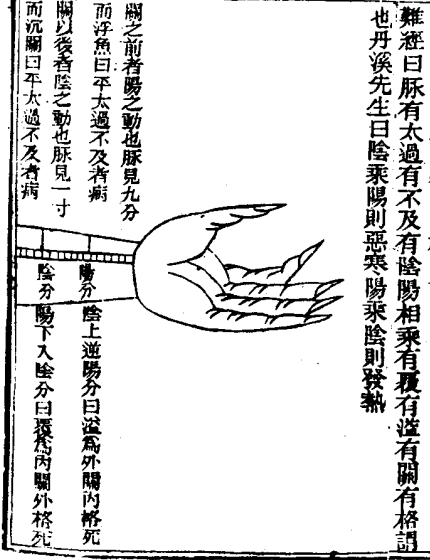 難經曰脉有太過有不及有陰陽相乘有覆有溢有關有格謂
也丹溪先生曰陰乘陽則惡寒陽乘陰則發熱
關之前者陽之動也脉見九分
而浮魚曰平太過不及者病
關以後者陰之動也脉見一寸
而沉關曰平太過不及者病
陽分
陰上逆陽分曰溢爲外關內格死
陰分
陽下入陰分曰覆爲內關外格死